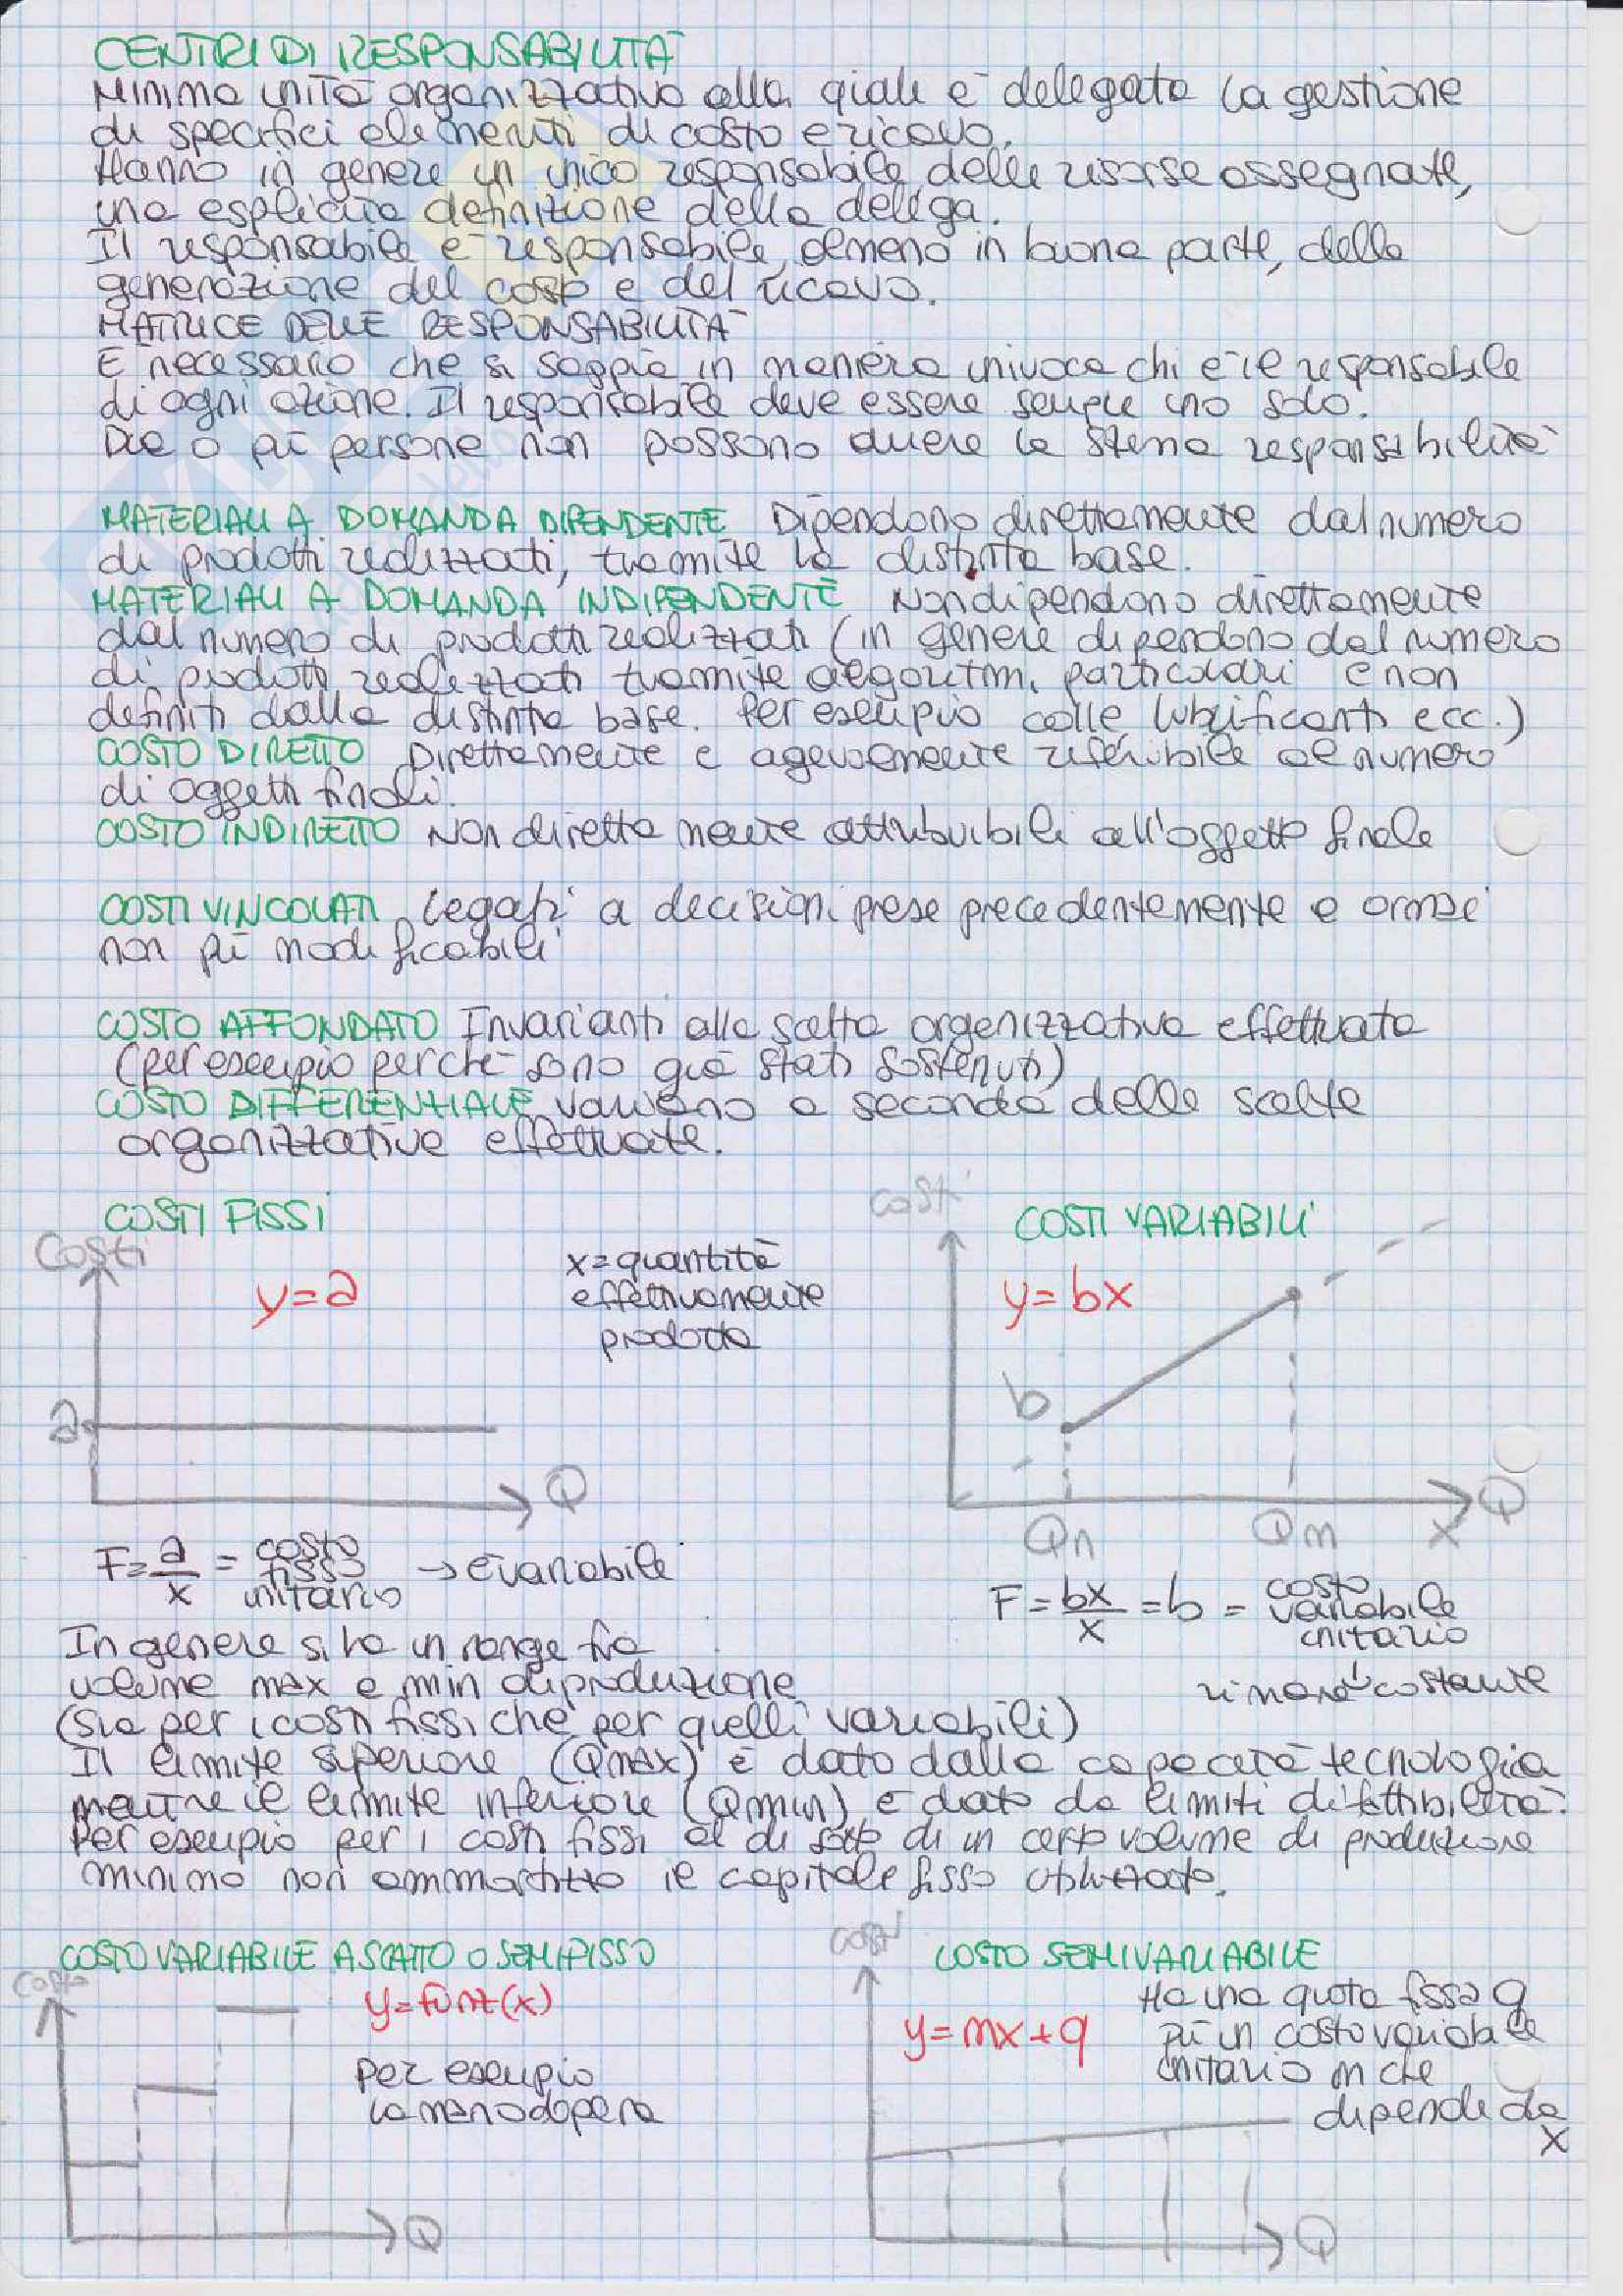 CENTRI DI RESPONSABILITÀ
Minima unità organizzativa alla quale è delegata la gestione
di specifici elementi di costo e ricavo.
Hanno in genere un unico responsabile delle risorse assegnate,
una esplicita definizione della delega.
Il responsabile è responsabile, almeno in buona parte, della
generazione del costo e del ricavo.
MATRICE DELLE RESPONSABILITÀ
È necessario che si sappia in maniera univoca chi è il responsabile
di ogni azione. Il responsabile deve essere sempre uno solo.
Due o più persone non possono avere la stessa responsabilità
MATERIALI A DOMANDA DIPENDENTE Dipendono direttamente dal numero
di prodotti realizzati, tramite la distinta base.
MATERIALI A DOMANDA INDIPENDENTE Non dipendono direttamente
dal numero di prodotti realizzati (in genere dipendono dal numero
di prodotti realizzati tramite algoritmi particolari e non
definiti dalla distinta base. Per esempio colle, lubrificanti ecc.)
COSTO DIRETTO Direttamente e agevolmente riferibile al numero
di oggetti finali.
COSTO INDIRETTO Non direttamente attribuibili all'oggetto finale
COSTI VINCOLATI Legati a decisioni prese precedentemente e ormai
non più modificabili
COSTO AFFONDATO Invarianti alla scelta organizzativa effettuata
(per esempio perché sono già stati sostenuti)
COSTO DIFFERENZIALE variano a seconda delle scelte
organizzative effettuate.
COSTI FISSI
Costi
y=a
a
Q
x=quantità
effettivamente
prodotta
costi
COSTI VARIABILI
y=bx
b
Qn
Qm
x
Q
F=a/x = costo fisso unitario → è variabile
F=bx/x=b= costo variabile unitario
rimane costante
In genere si ha un range fra
volume max e min di produzione
(sia per i costi fissi che per quelli variabili)
Il limite superiore (Qmax) è dato dalla capacità tecnologica
mentre il limite inferiore (Qmin) è dato da limiti di fattibilità.
Per esempio per i costi fissi al di sotto di un certo volume di produzione
minimo non ammortizzo il capitale fisso utilizzato.
COSTO VARIABILE A SCATTO O SEMIFISSO
costo
y=funz(x)
Per esempio
la manodopera
Q
costi
COSTO SEMIVARIABILE
y=mx+q
Ha una quota fissa q
più un costo variabile
unitario m che
dipende da
x
Q